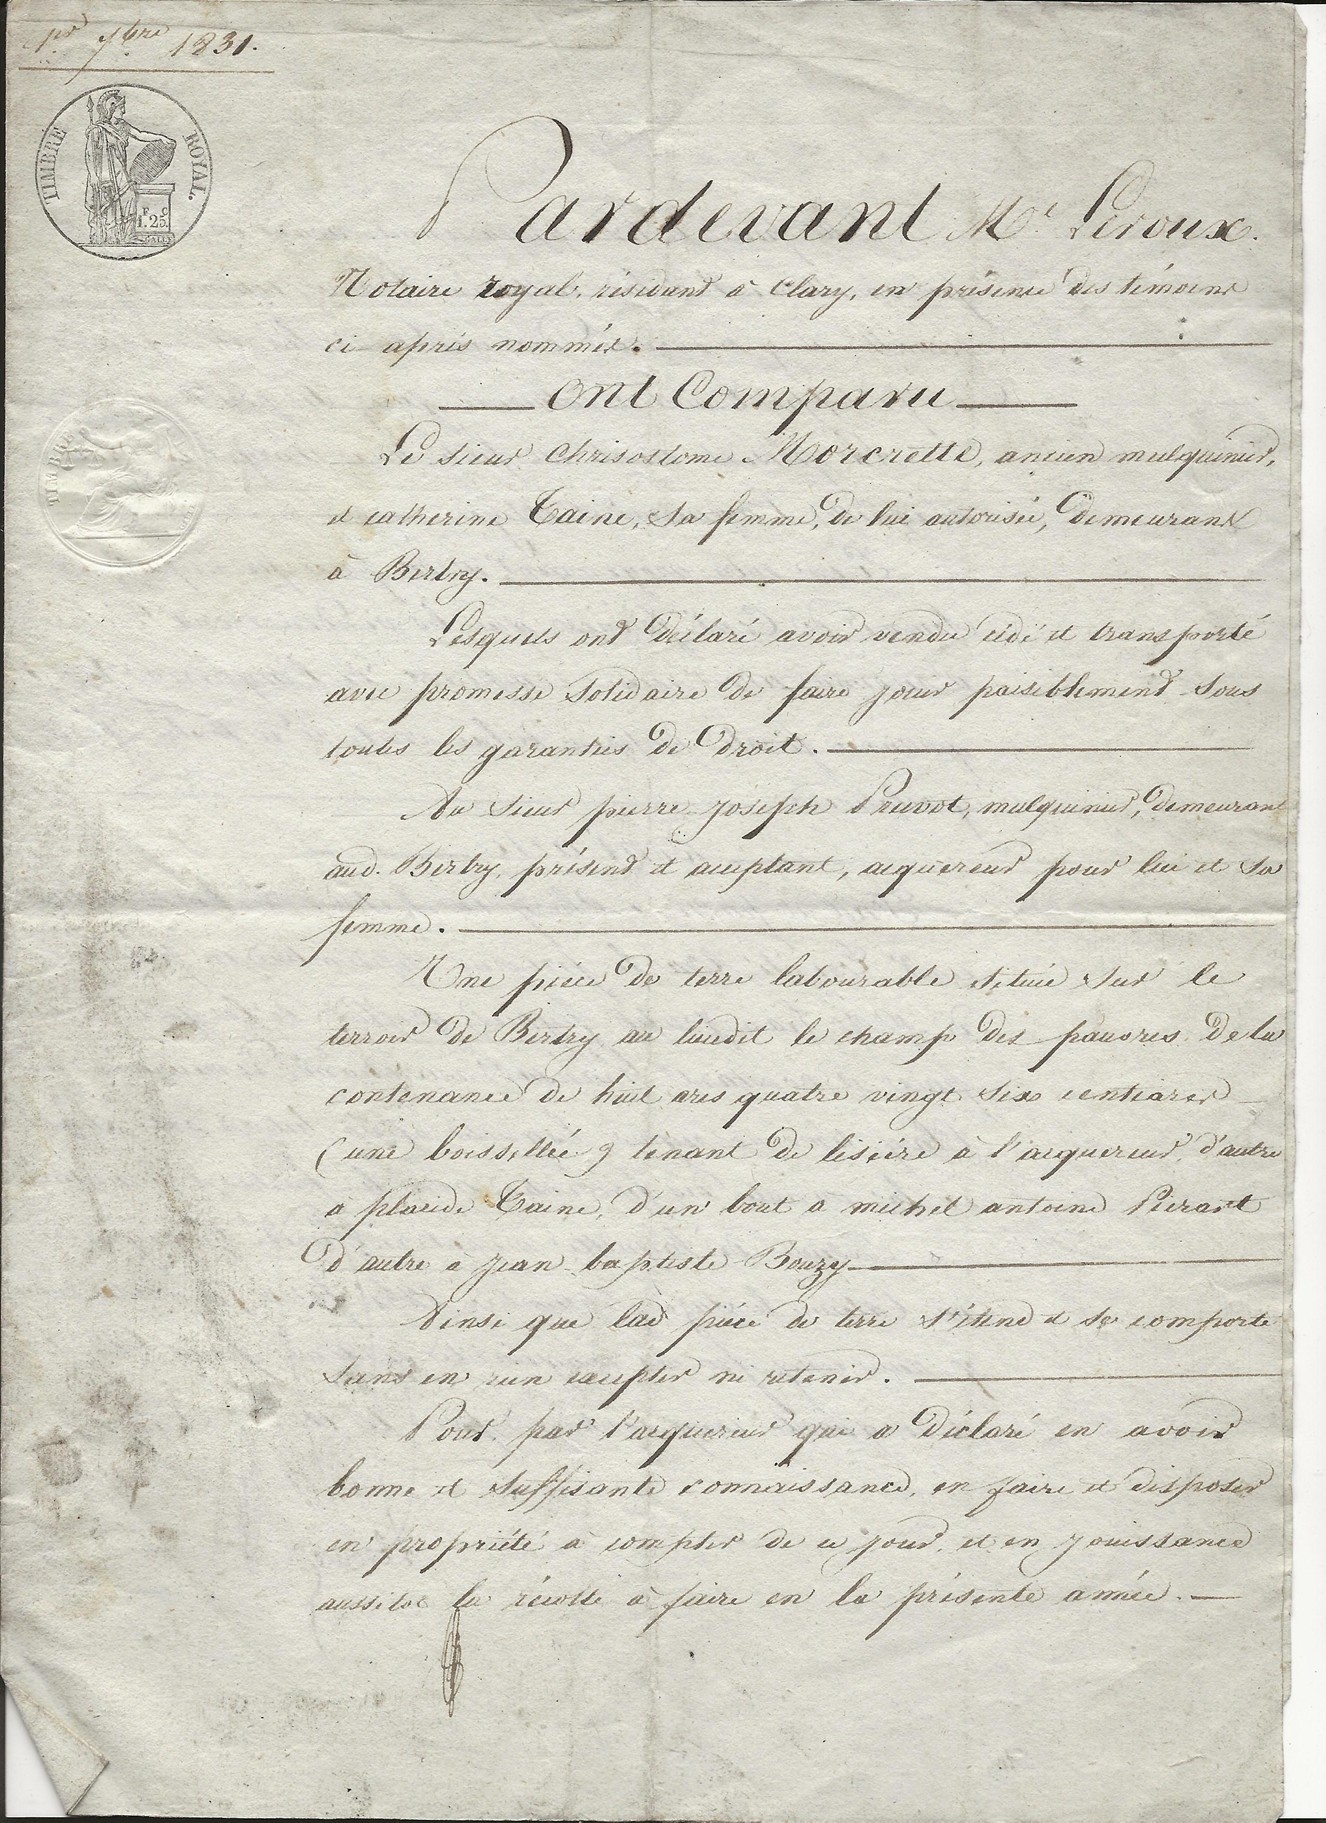 1er 7bre 1831.
TIMBRE ROYAL.
F C
1.25
Pardevant Me Leroux.
Notaire royal, résidant à Clary, en présence des témoins
ci-après nommés.
ont Comparu
Le sieur Chrisostome Morcrette, ancien mulquinier,
et catherine Taine, sa femme, de lui autorisée, demeurant
à Bertry.
Lesquels ont déclaré avoir vendu cédé et transporté
avec promesse solidaire de faire jouir paisiblement sous
toutes les garanties de droit.
Au sieur pierre joseph Pruvot, mulquinier, demeurant
aud. Bertry, présent et acceptant, acquereur pour lui et sa
femme.
Une pièce de terre labourable située sur le
terroir de Bertry au lieudit le champ des pauvres de la
contenance de huit ares quatre vingt six centiares
(une boissellée) tenant de lisière à l'acquereur, d'autre
a placide Taine, d'un bout a michel antoine Pierart
d'autre à jean baptiste Bouzy
Ainsi que lad. pièce de terre s'étend et se comporte
sans en rien excepter ni retenir.
Pour, par l'acquereur qui a déclaré en avoir
bonne et suffisante connaissance, en faire et disposer
en propriété à compter de ce jour, et en jouissance
aussitot la récolte à faire en la présente année.